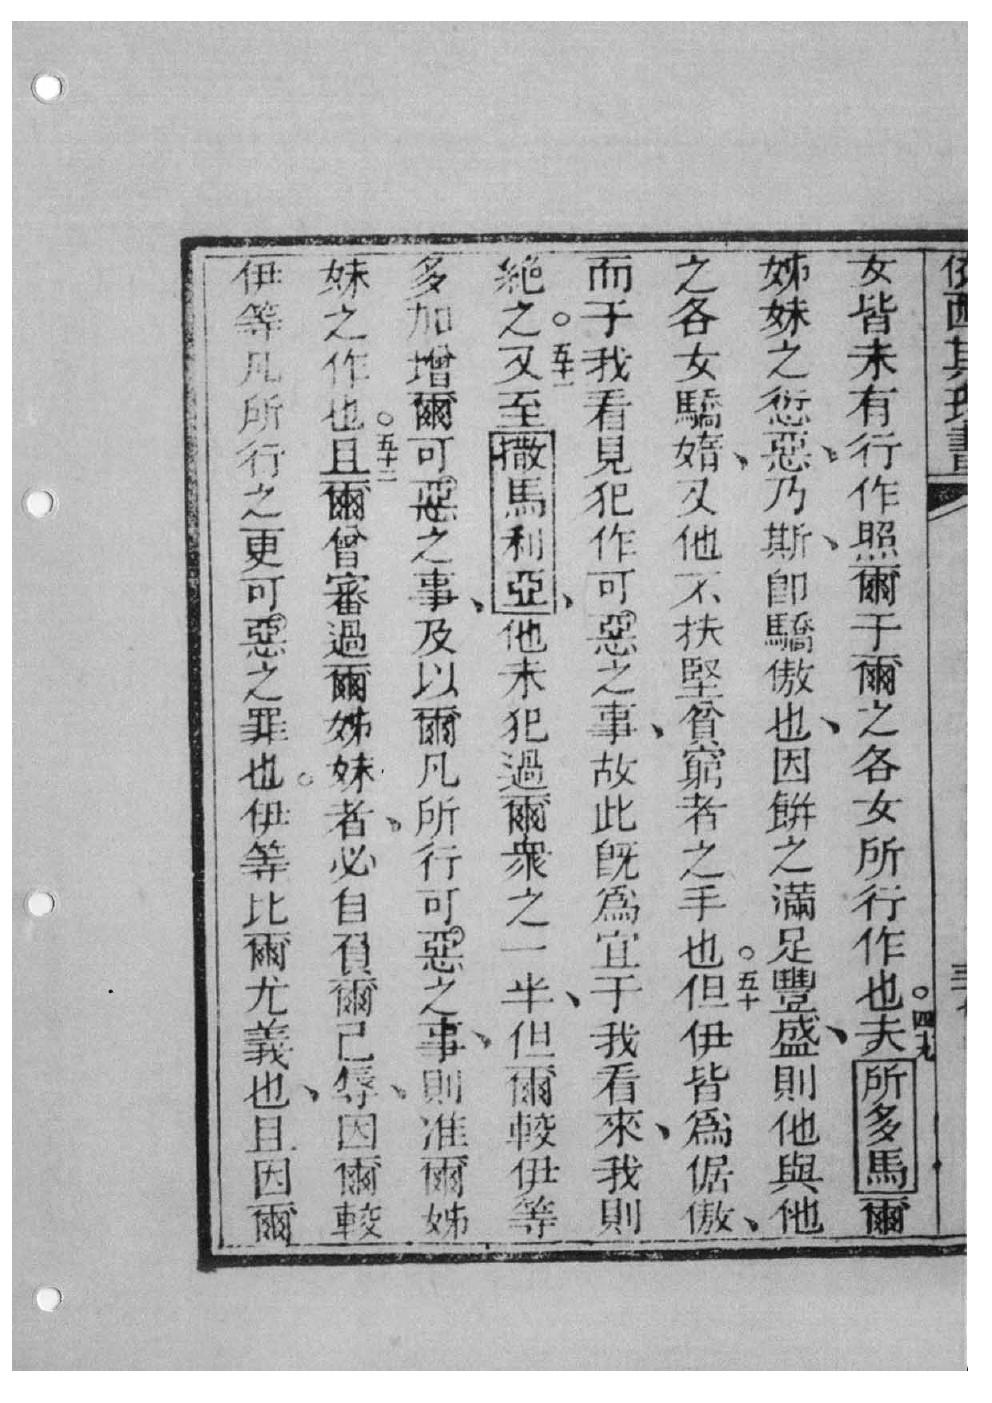 女皆未有行作照爾于爾之各女所行作也。四九夫所多馬爾
姊妹之愆惡、乃斯、卽驕傲也、因餅之滿足豐盛、則他與他
之各女驕媠、又他不扶堅貧窮者之手也。五十但伊皆爲倨傲、
而于我看見犯作可惡之事、故此旣爲宜于我看來、我則
絕之。五十一又至撒馬利亞、他未犯過爾衆之一半、但爾較伊等
多加增爾可惡之事、及以爾凡所行可惡之事、則准爾姊
妹之作也。五十二且爾曾審過爾姊妹者、必自負爾己辱、因爾較
伊等凡所行之更可惡之罪也。伊等比爾尤義也、且因爾